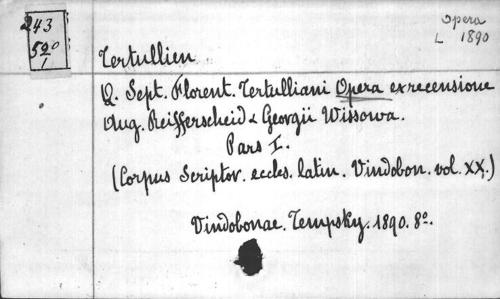 243
520
1
Opera
L 1890
Tertullien
Q. Sept. Florent. Tertulliani Opera ex recensione
Aug. Reifferscheid & Georgii Wissowa.
Pars I.
(Corpus Scriptor. eccles. latin. Vindobon. vol. XX.)
Vindobonae. Tempsky. 1890. 8º.